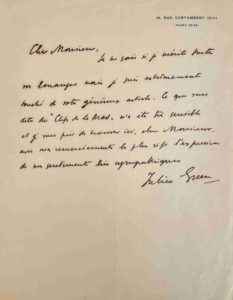 16, RUE CORTAMBERT (XVIe)
Cher Monsieur,
Je ne sais si je mérite toutes
vos louanges mais je suis extrêmement
touché de votre généreux article. Ce que vous
dites des "Clefs de la Mort" m'a été très sensible
et je vous prie de trouver ici, cher Monsieur,
avec mes remerciements les plus vifs l'expression
de mes sentiments bien sympathiques
Julien Green